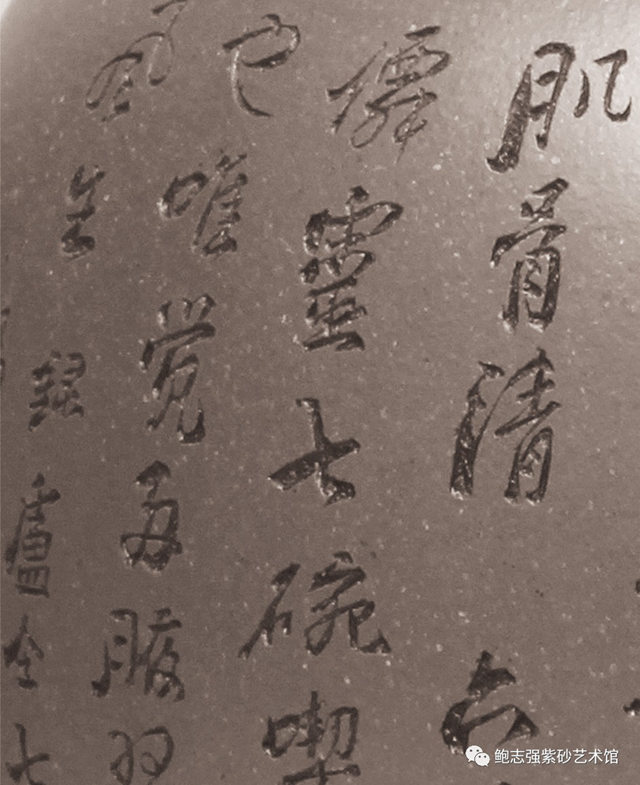 肌骨清六
僊靈七碗喫
也唯覺两腋習
風生録盧仝七
鲍志强紫砂艺术馆